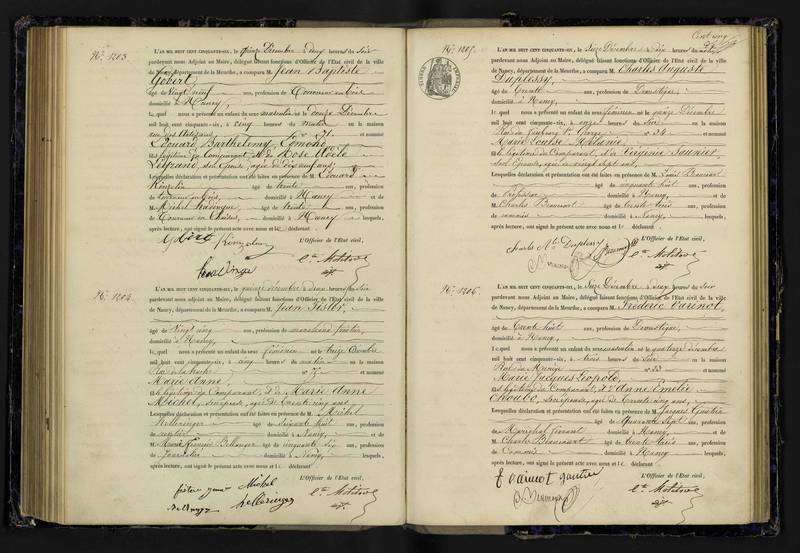 N° 1203
L'AN MIL HUIT CENT CINQUANTE-SIX, le quinze Décembre à deux heures du soir
pardevant nous Adjoint au Maire, délégué faisant fonctions d'Officier de l'Etat civil de la ville
de Nancy, département de la Meurthe, a comparu M. Jean Baptiste
Gobert
âgé de Vingt neuf ans, profession de Tourneur en bois
domicilié à Nancy,
le quel nous a présenté un enfant du sexe masculin né le douze Décembre
mil huit cent cinquante-six, à cinq heures du matin en la maison
et nommé
Edouard Barthelemy Edmond
fils légitime du Comparant, et de Rose Adèle
son Epouse, âgée de dix neuf ans;
Lesquelles déclaration et présentation ont été faites en présence de M. Edouard
âgé de trente ans, profession
de Tourneur en bois, domicilié à Nancy et de
M. âgé de trente ans, profession
de Tourneur en Chaises, domicilié à Nancy lesquels,
après lecture, ont signé le présent acte avec nous et le déclarant
L'Officier de l'Etat civil,
N° 1204
L'AN MIL HUIT CENT CINQUANTE-SIX, le quinze décembre à deux heures du Soir
pardevant nous Adjoint au Maire, délégué faisant fonctions d'Officier de l'Etat civil de la ville
de Nancy, département de la Meurthe, a comparu M. Jean
âgé de Vingt cinq ans, profession de marchand
domicilié à Nancy,
le quel nous a présenté un enfant du sexe féminin né le treize Décembre
mil huit cent cinquante-six, à cinq heures du matin en la maison
Rue de la hache
Marie Anne,
fille légitime du Comparant, et de Marie Anne
Michel, son épouse, âgée de Trente cinq ans
Lesquelles déclaration et présentation ont été faites en présence de M. Michel
âgé de soixante huit ans, profession
de rentier domicilié à Nancy, et de
M. François âgé de cinquante six ans, profession
de Journalier domicilié à Nancy lesquels,
après lecture, ont signé le présent acte avec nous et le déclarant
L'Officier de l'Etat civil,
Michel
N° 1205
L'AN MIL HUIT CENT CINQUANTE-SIX, le Seize Décembre à dix heures du matin
pardevant nous Adjoint au Maire, délégué faisant fonctions d'Officier de l'Etat civil de la ville
de Nancy, département de la Meurthe, a comparu M. Charles Auguste
Duplessy,
âgé de Trente ans, profession de Domestique,
domicilié à Nancy,
le quel nous a présenté un enfant du sexe féminin né le quinze Décembre
mil huit cent cinquante-six, à onze heures du Soir en la maison
Rue du faubourg St George n° 34 et nommé
Marie Louise Mélanie
fille légitime du Comparant, et de Virginie
son Epouse, âgée de vingt sept ans,
Lesquelles déclaration et présentation ont été faites en présence de M. Louis
âgé de cinquante huit ans, profession
de Professeur domicilié à Nancy et de
M. Charles Beaumont âgé de trente trois ans, profession
de commis domicilié à Nancy, lesquels,
après lecture, ont signé le présent acte avec nous et le déclarant
L'Officier de l'Etat civil,
N° 1206
L'AN MIL HUIT CENT CINQUANTE-SIX, le Seize Décembre à deux heures du Soir
pardevant nous Adjoint au Maire, délégué faisant fonctions d'Officier de l'Etat civil de la ville
de Nancy, département de la Meurthe, a comparu M. Frédéric Varinot,
âgé de Trente huit ans, profession de Domestique,
domicilié à Nancy,
le quel nous a présenté un enfant du sexe masculin né le quatorze décembre
mil huit cent cinquante-six, à trois heures du Soir en la maison
n° 33 et nommé
Marie Jacques Léopold
fils légitime du Comparant, et d'Anne Emélie
son épouse, âgée de Trente cinq ans,
Lesquelles déclaration et présentation ont été faites en présence de M. Jacques
âgé de Quarante Sept ans, profession
de Maréchal ferrant domicilié à Nancy et de
M. Charles Beaumont âgé de trente trois ans, profession
de Commis domicilié à Nancy lesquels,
après lecture, ont signé le présent acte avec nous et le déclarant
L'Officier de l'Etat civil,